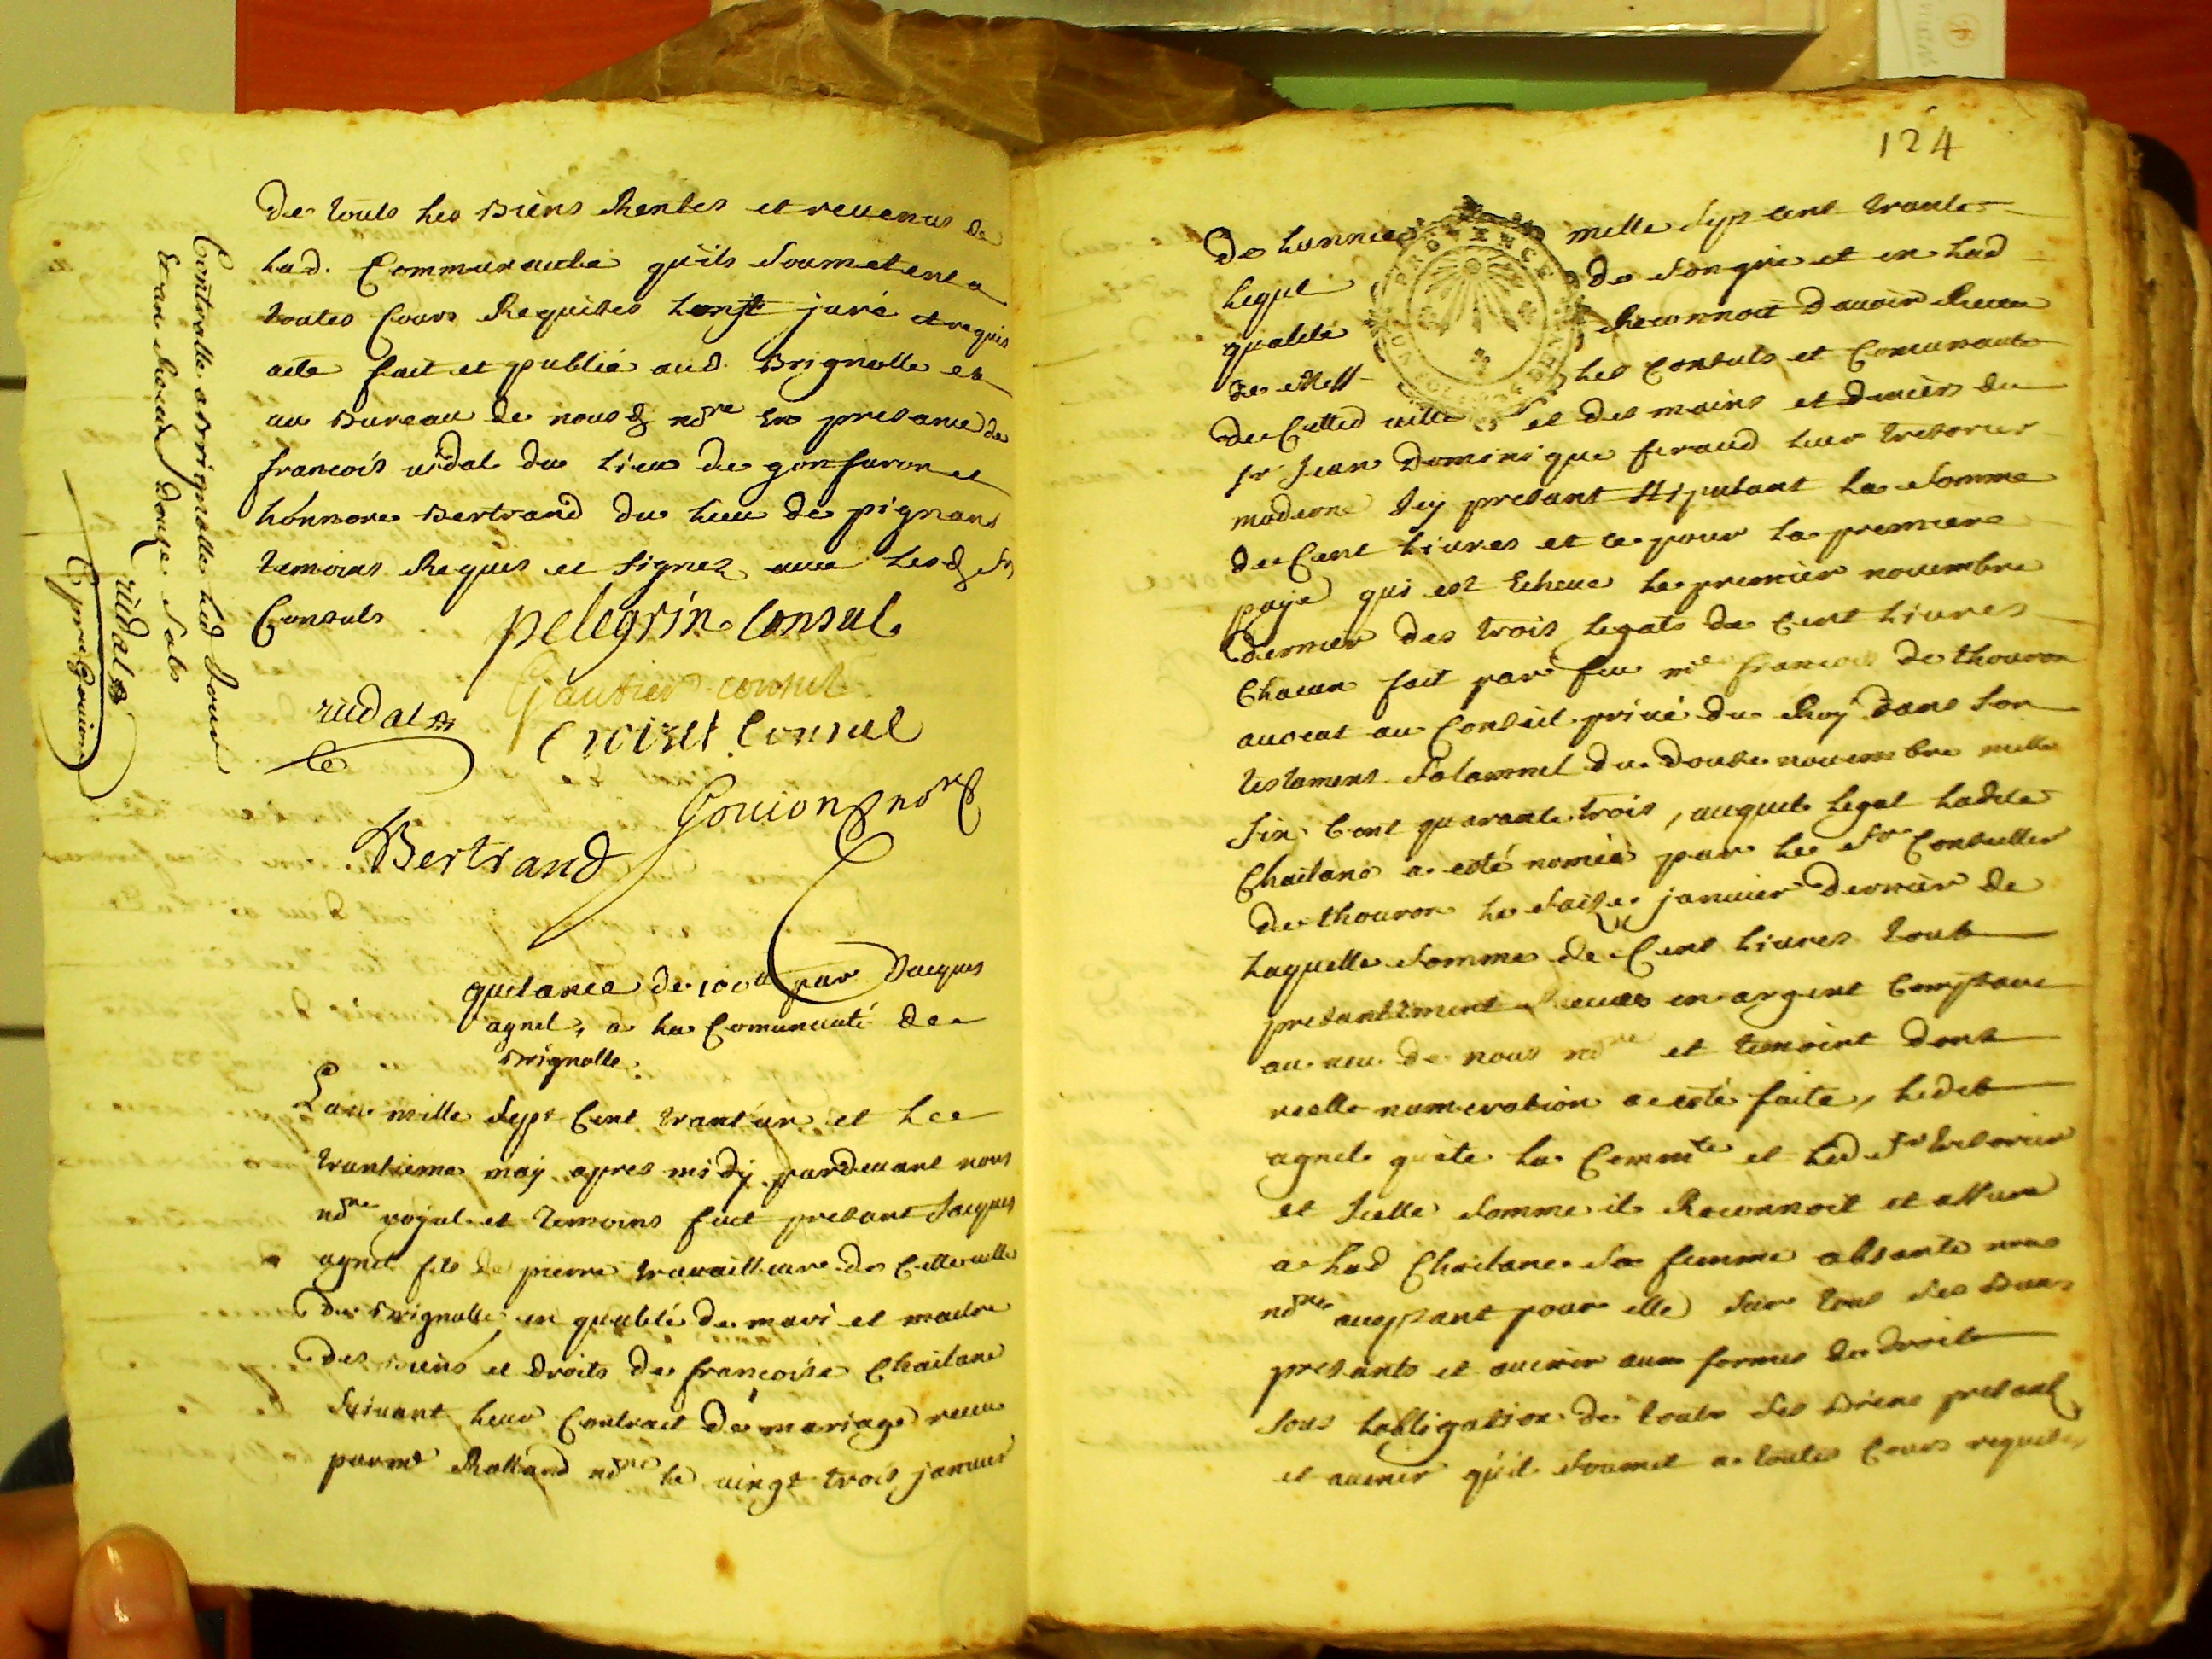 de touts les Biens Rentes et revenus de
lad. Communauté quils soumetent a
toutes Cours Requises lont juré et requis
acte fait et publié aud. Brignolle et
au Bureau de nousd nōre En presance de
francois vidal du lieu de gonfaron et
hônnoré Bertrand du lieu de pignans
temoins Requis et signez avec lesd srs
Consuls pelegrin Consul
Gautier consul
vidal Croiset Consul
Gouion nōre
Bertrand
Controlle a Brignolle led jour
et an Receu douze sols
vidal
Gouion
quitance de 100ll par Jacques
agnel, a la Comunauté de
Brignolle.
L'an mille sept Cent trant'un et le
trantieme may apres midy pardevant nous
nōre royal et temoins fuct presant Jacques
agnel fils de pierre travailleur de Cette ville
de Brignolle en qualité de mari et maitre
des Biens et droits de francoise Chailane
suivant leur Contract de mariage receu
par me Rolland nōre le vingt trois janvier
124
de lannée mille sept cent trante
lequel de son gré et en lad
qualité Reconnoit davoir Receu
de Mess les Consuls et Comunauté
de Cetted ville et des mains et deniers du
sr Jean Dominique feraud leur tresorier
moderne Icy presant stipulant la somme
de Cent livres et ce pour la premiere
paye qui est Echeue le premier novembre
dernier des trois legats de Cent livres
Chacun fait par feu me francois de thouron
avocat au Conseil privé du Roy dans son
testament solamnel du douse novembre mille
six Cent quarante trois, auquel legat ladite
Chailane a esté nomée par le sr Conseiller
de thouron le saise janvier dernier de
laquelle somme de Cent livres tout
presantement Receues en argent Comptant
au veu de nous nōre et temoins dont
reelle numeration a esté faite, ledit
agnel quite la Commte et led sr tresorier
et Icelle somme il Reconnoit et assure
a lad Chailane sa femme absante nous
nōre aceptant pour elle sur tous ses Biens
presants et avenir aux formes de droit
sous lobligation de touts ses Biens presants
et avenir quil soumet a toutes Cours requises
PROVENCE